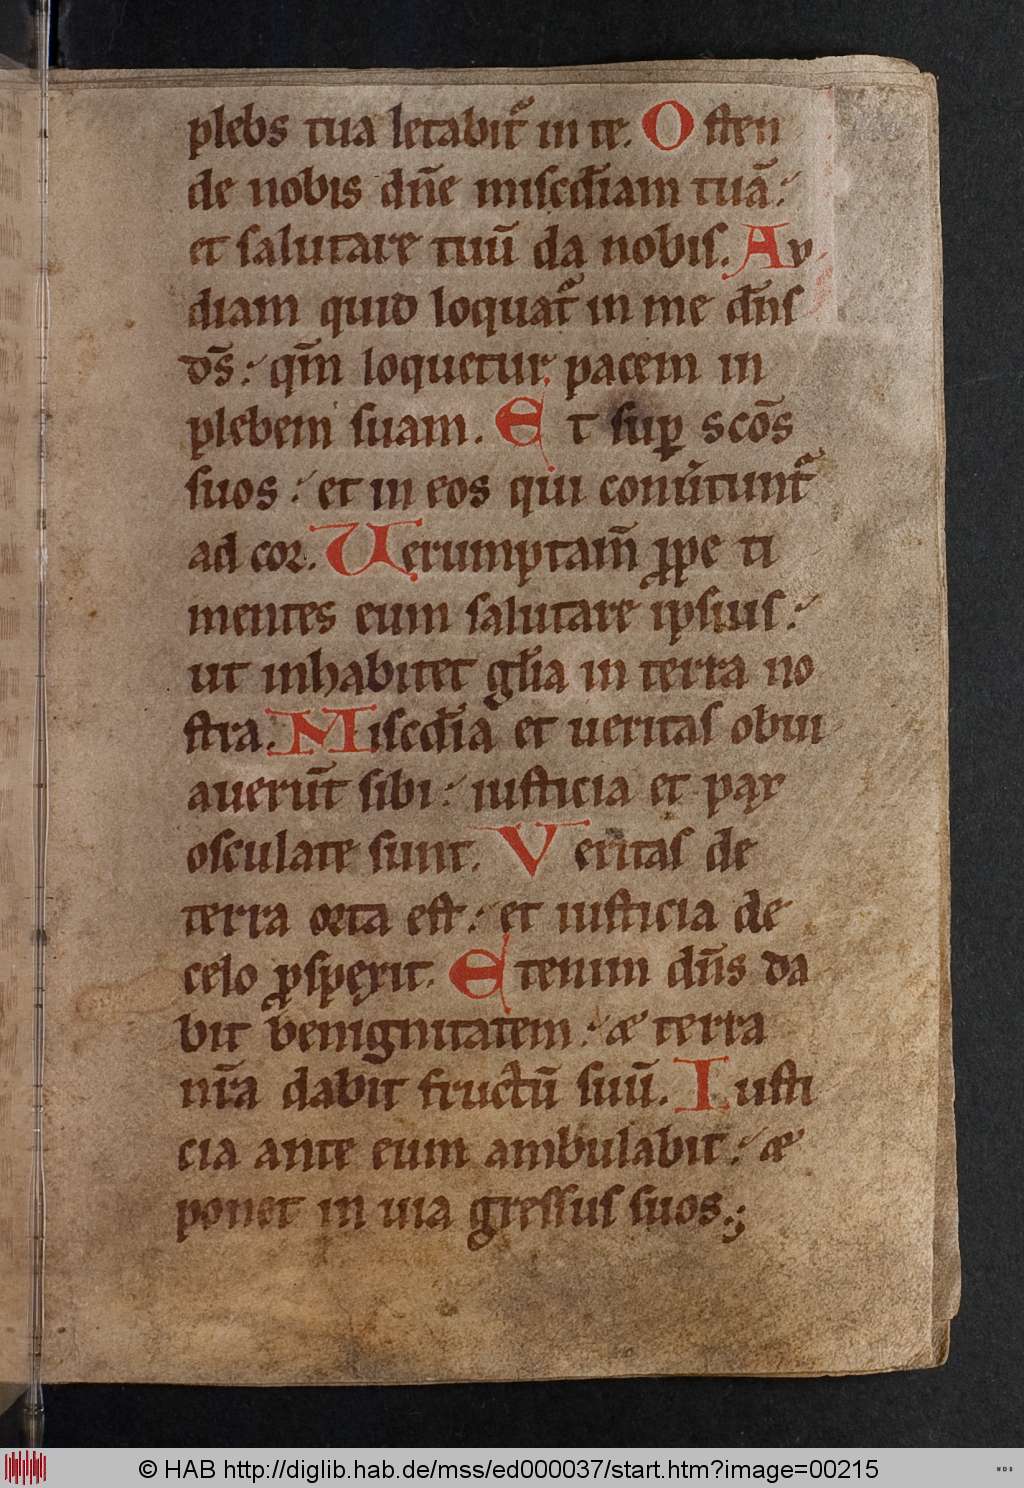 plebs tua letabit᷑ in te. Osten
de nobis dn̄e misc̄diam tuā:
et salutare tuū da nobis. Au
diam quid loquat᷑ in me dn̄s
ds̄: qm̄ loquetur pacem in
plebem suam. Et suꝑ scōs
suos: et in eos qui conūtunt᷑
ad cor. Uerumptam̄ ꝓpe ti
mentes eum salutare ipsius:
ut inhabitet gl̄ia in terra no
stra. Misc̄dia et ueritas obui
auerūt sibi: iusticia et pax
osculate sunt. Veritas de
terra orta est: et iusticia de
celo ꝓspexit. Etenim dn̄s da
bit benignitatem: & terra
nr̄a dabit fructū suū. Iusti
cia ante eum ambulabit: &
ponet in uia gressus suos.;
© HAB http://diglib.hab.de/mss/ed000037/start.htm?image=00215